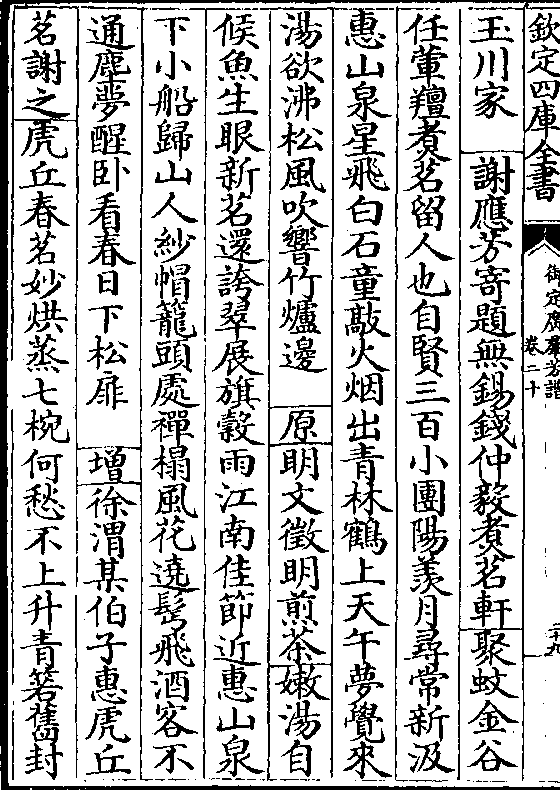 欽定四庫全書
御定廣羣芳譜
卷二十
二十九
玉川家　謝應芳寄題無錫錢仲毅煮茗軒聚蚊金谷
任葷羶煮茗留人也自賢三百小團陽羨月尋常新汲
惠山泉星飛白石童敲火烟出青林鶴上天午夢覺來
湯欲沸松風吹響竹爐邊　原明文徵明煎茶嫩湯自
候魚生眼新茗還誇翠展旗穀雨江南佳節近惠山泉
下小船歸山人紗帽籠頭處禪榻風花遶鬂飛酒客不
通塵夢醒卧看春日下松扉　增徐渭某伯子惠虎丘
茗謝之虎丘春茗妙烘蒸七椀何愁不上升青箬舊封